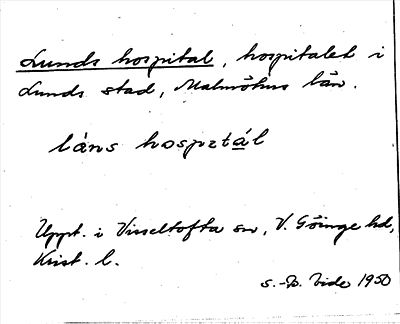 Lunds hospital, hospitalet i
Lunds stad, Malmöhus län.
låns hospetál
Uppt. i Visseltofta sn, V. Göinge hd,
Krist. l.
S.-B. Vide 1950